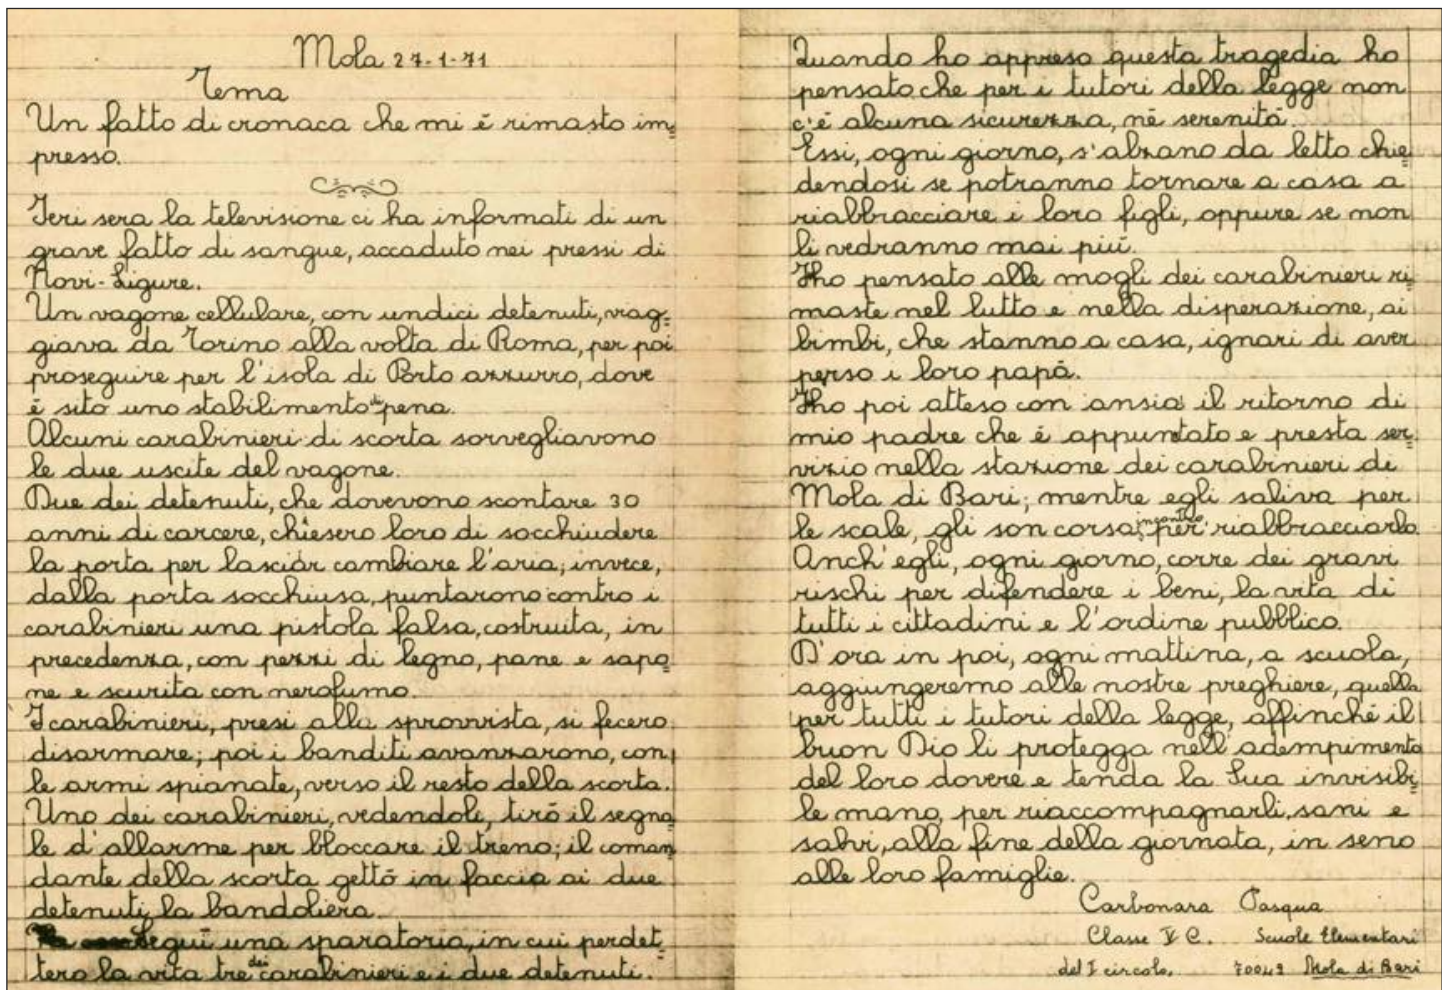 Mola 27-1-71
Tema
Un fatto di cronaca che mi è rimasto im=
presso.
Ieri sera la televisione ci ha informati di un
grave fatto di sangue, accaduto nei pressi di
Novi-Ligure.
Un vagone cellulare, con undici detenuti, viag=
giava da Torino alla volta di Roma, per poi
proseguire per l'isola di Porto azzurro, dove
è sito uno stabilimento di pena.
Alcuni carabinieri di scorta sorvegliavono
le due uscite del vagone.
Due dei detenuti, che dovevono scontare 30
anni di carcere, chiesero loro di socchiudere
la porta per lasciar cambiare l'aria; invece,
dalla porta socchiusa, puntarono contro i
carabinieri una pistola falsa, costruita, in
precedenza, con pezzi di legno, pane e sapo=
ne e scurita con nerofumo.
I carabinieri, presi alla sprovvista, si fecero
disarmare; poi i banditi avanzarono, con
le armi spianate, verso il resto della scorta.
Uno dei carabinieri, vedendoli, tirò il segna=
le d'allarme per bloccare il treno; il coman=
dante della scorta gettò in faccia ai due
detenuti, la bandoliera.
Seguì una sparatoria, in cui perdet=
tero la vita tre dei carabinieri e i due detenuti.
Quando ho appreso questa tragedia ho
pensato che per i tutori della legge non
c'è alcuna sicurezza, nè serenità.
Essi, ogni giorno, s'alzano da letto chie=
dendosi se potranno tornare a casa a
riabbracciare i loro figli, oppure se non
li vedranno mai più.
Ho pensato alle mogli dei carabinieri ri=
maste nel lutto e nella disperazione, ai
bimbi, che stanno a casa, ignari di aver
perso i loro papà.
Ho poi atteso con ansia il ritorno di
mio padre che è appuntato e presta ser=
vizio nella stazione dei carabinieri di
Mola di Bari; mentre egli saliva per
le scale, gli son corsa incontro, per riabbracciarlo.
Anch'egli, ogni giorno, corre dei gravi
rischi per difendere i beni, la vita di
tutti i cittadini e l'ordine pubblico.
D'ora in poi, ogni mattina, a scuola,
aggiungeremo alle nostre preghiere, quella
per tutti i tutori della legge, affinchè il
buon Dio li protegga nell'adempimento
del loro dovere e tenda la Sua invisibi=
le mano, per riaccompagnarli, sani e
salvi, alla fine della giornata, in seno
alle loro famiglie.
Carbonara Pasqua
Classe V C. Scuole Elementari
del I circolo. 70042 Mola di Bari